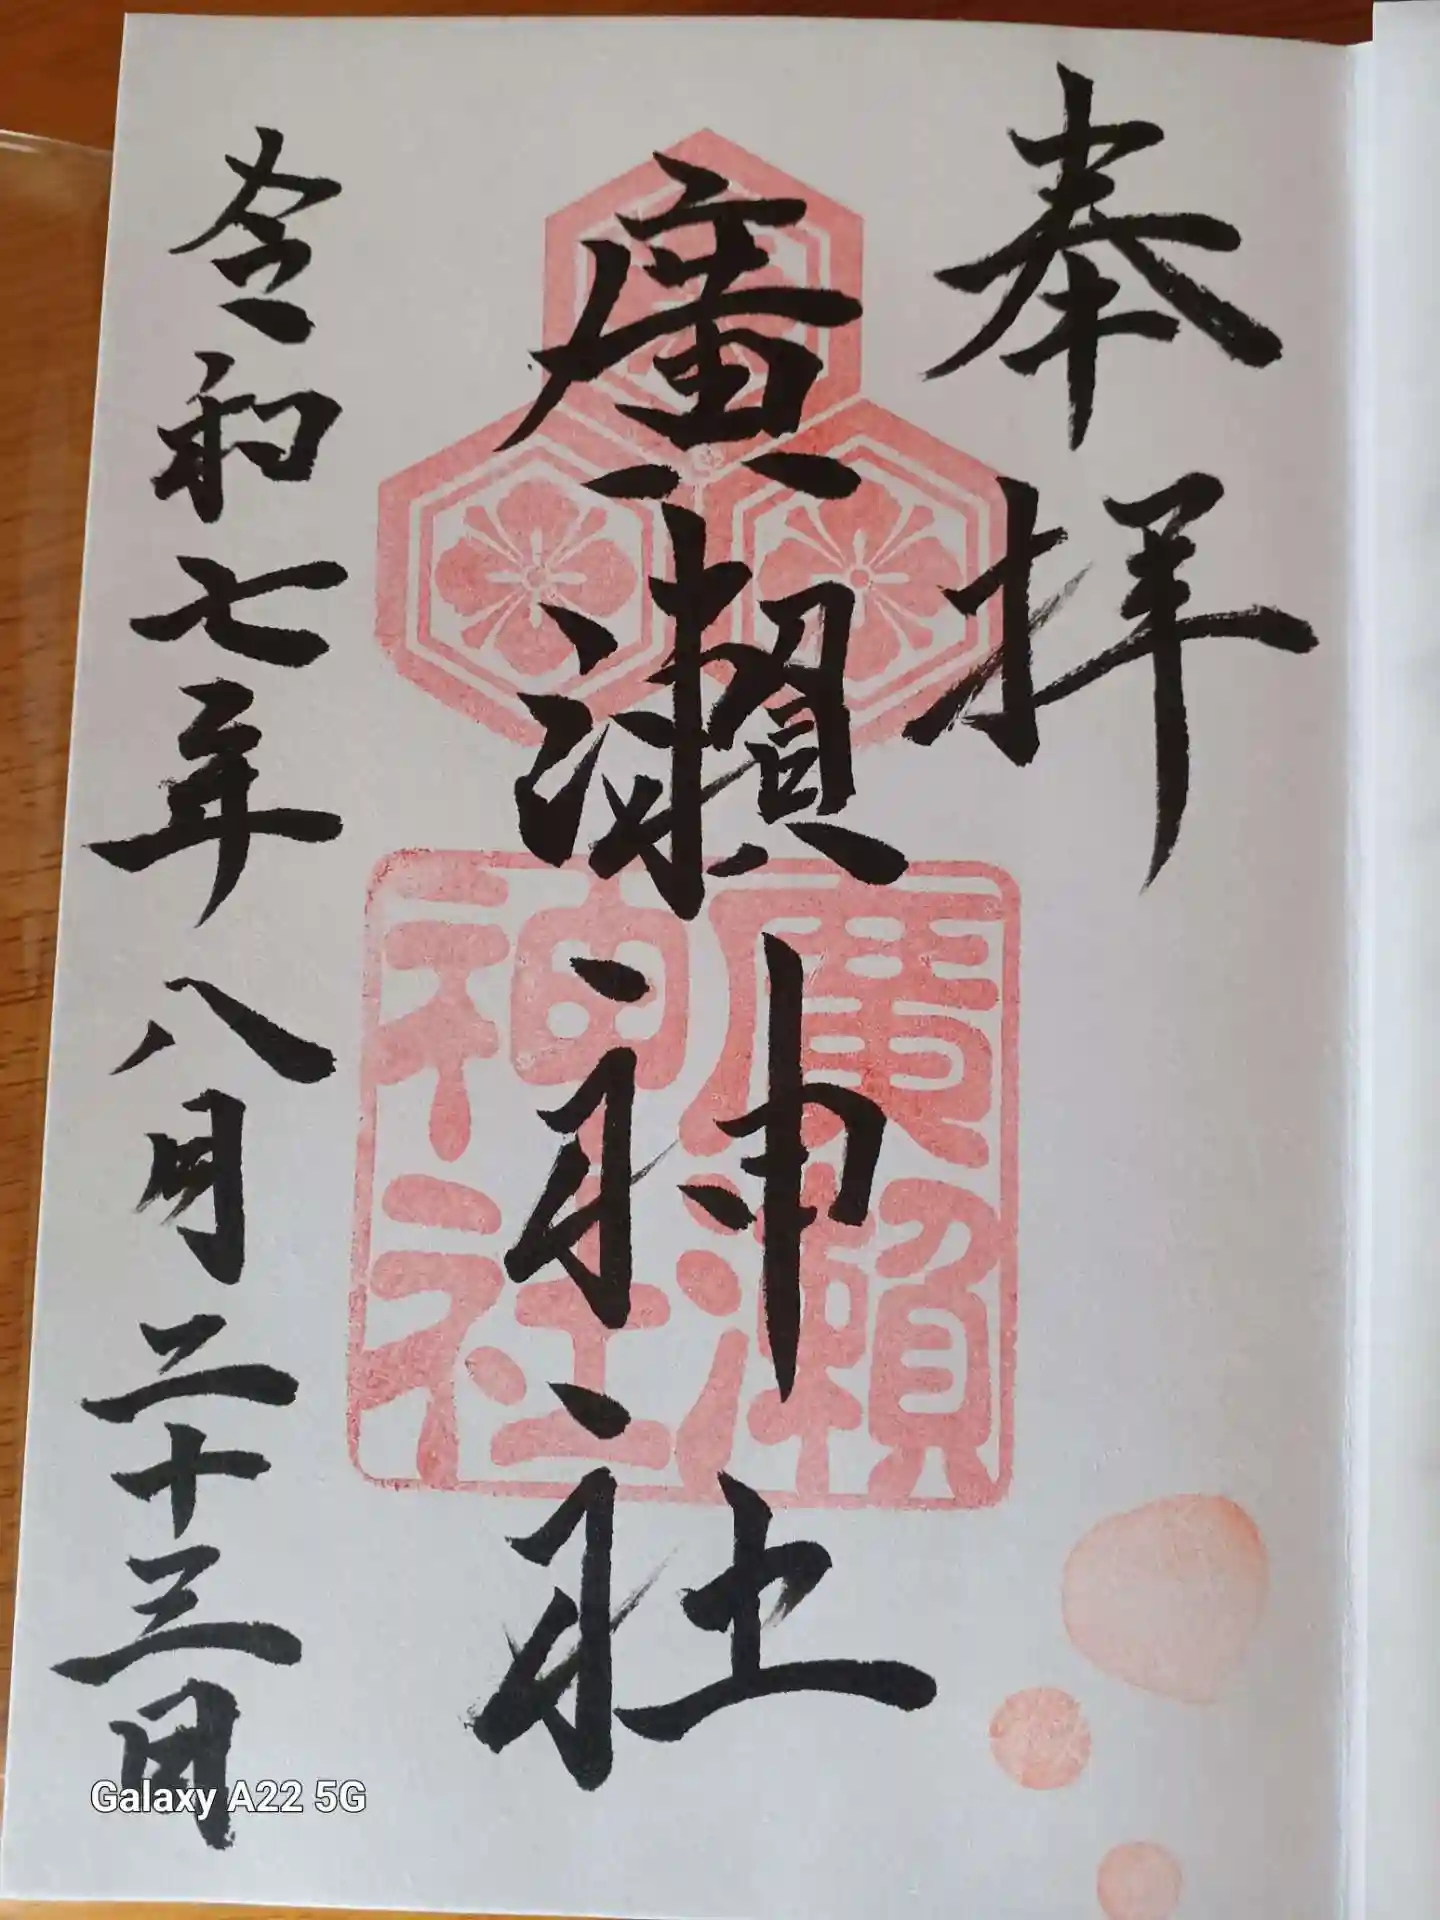 奉拝
廣瀬神社
廣瀬
神社
令和七年八月二十三日
Galaxy A22 5G